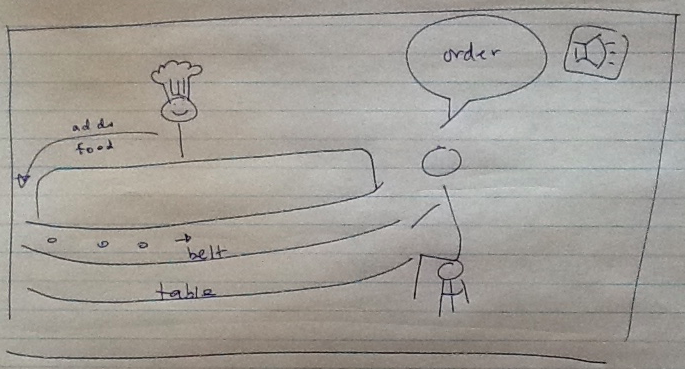 order
adds
food
belt
table